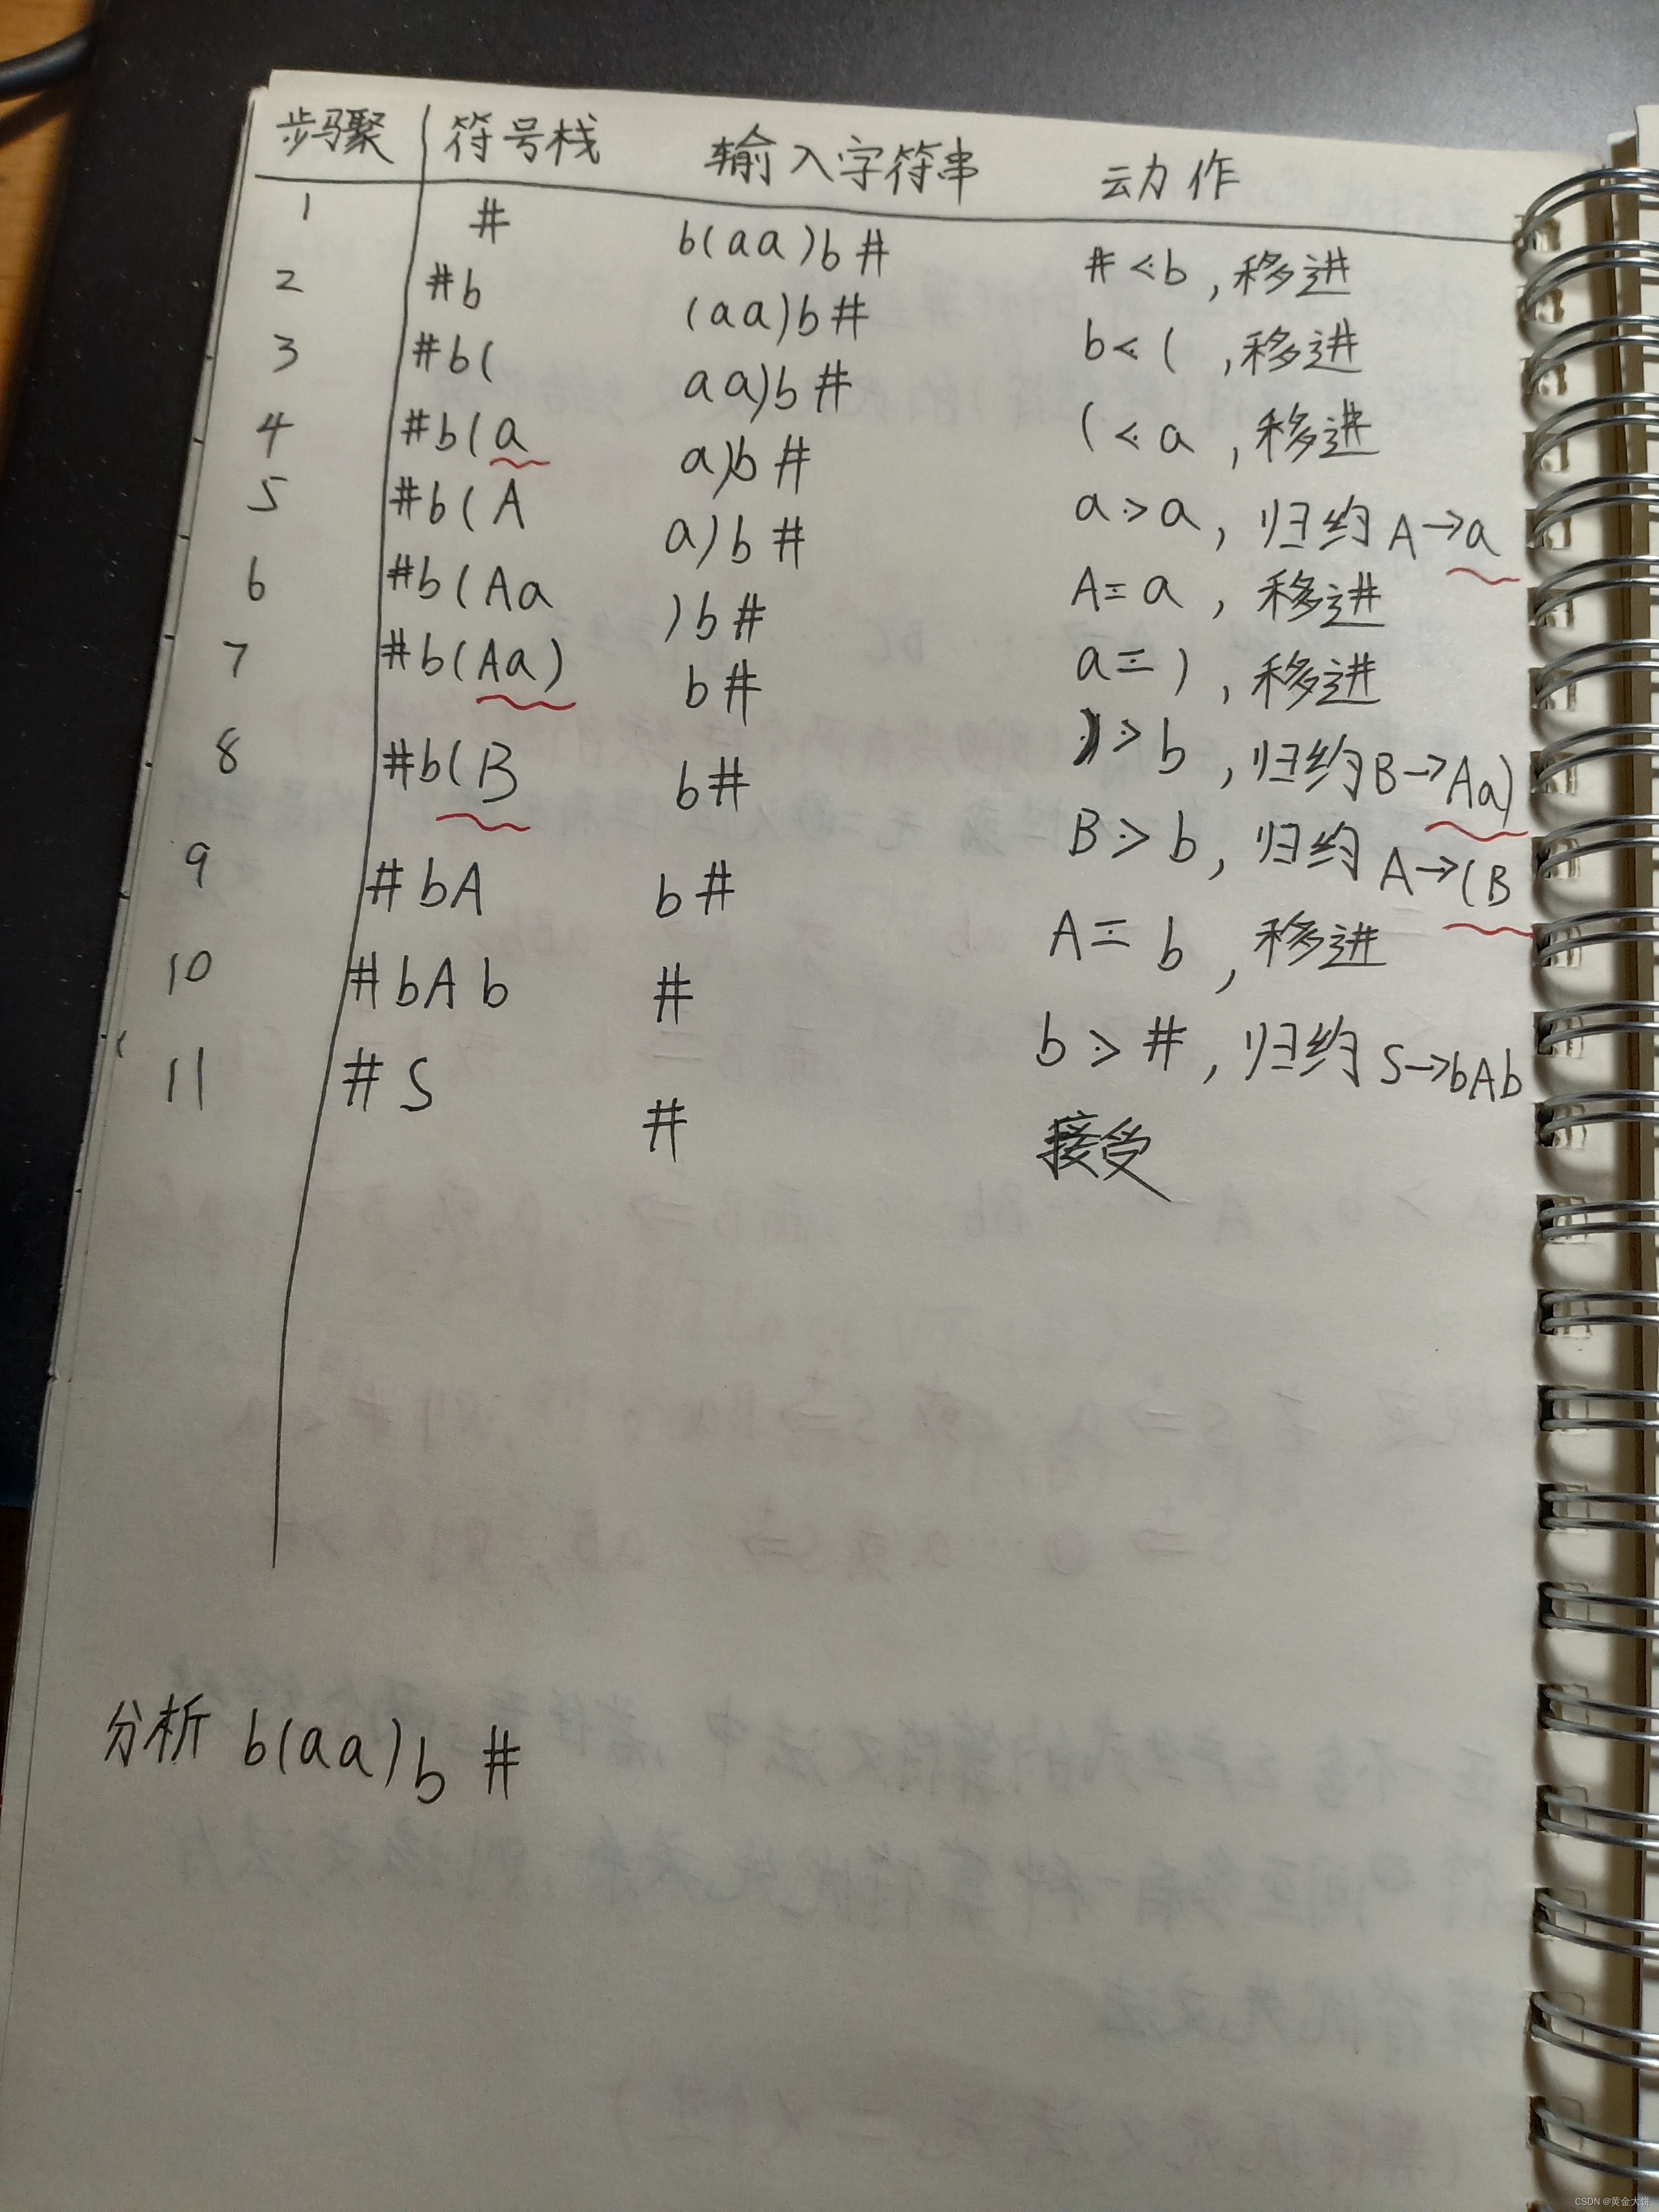 步骤 符号栈 输入字符串 动作
1 # b(aa)b# #⋖b,移进
2 #b (aa)b# b⋖(,移进
3 #b( aa)b# (⋖a,移进
4 #b(a a)b# a⋗a,归约A→a
5 #b(A a)b# A≐a,移进
6 #b(Aa )b# a≐),移进
7 #b(Aa) b# )⋗b,归约B→Aa)
8 #b(B b# B⋗b,归约A→(B
9 #bA b# A≐b,移进
10 #bAb # b⋗#,归约S→bAb
11 #S # 接受
分析 b(aa)b #
CSDN @黄金大饼